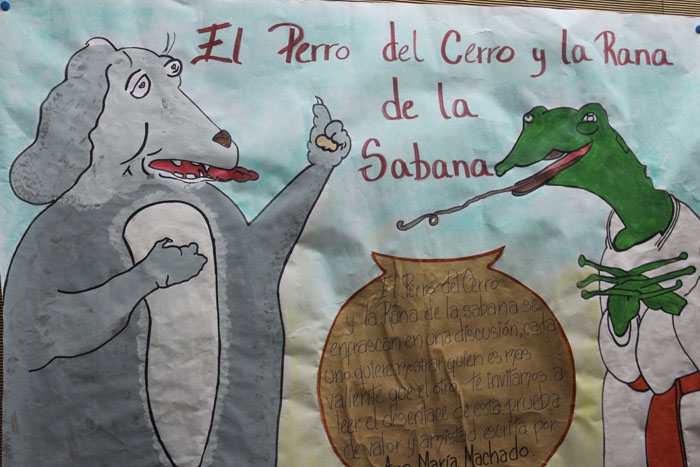 El Perro del Cerro y la Rana
de la
Sabana
El Perro del Cerro
y la Rana de la sabana se
enfrascan en una discusión, cada
uno quiere mostrar quien es más
valiente que el otro, te invitamos a
leer el desenlace de esta prueba
de valor y amistad, escrita por
Ana María Machado.